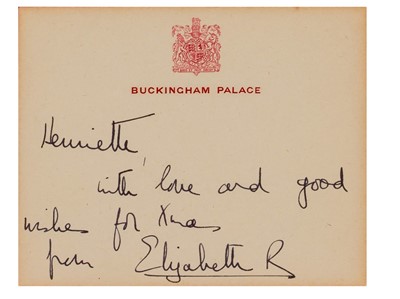 BUCKINGHAM PALACE
Henriette,
with love and good
wishes for Xmas
from Elizabeth R